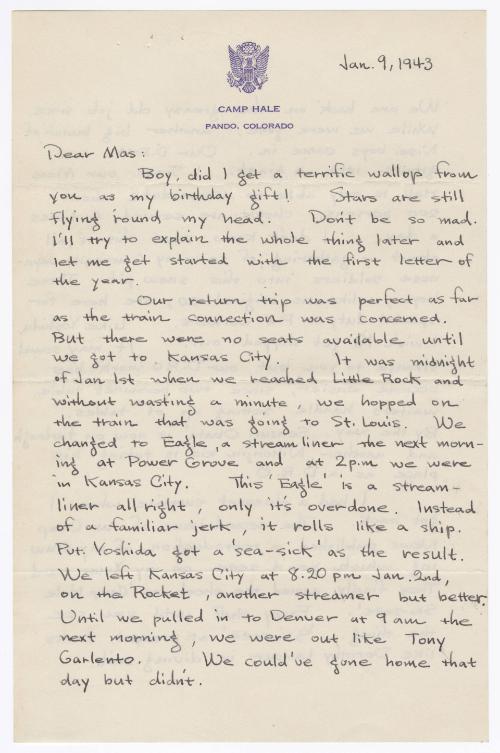 Jan. 9, 1943
CAMP HALE
PANDO, COLORADO
Dear Mas:
Boy, did I get a terrific wallop from
you as my birthday gift! Stars are still
flying 'round my head. Don't be so mad.
I'll try to explain the whole thing later and
let me get started with the first letter of
the year.
Our return trip was perfect as far
as the train connection was concerned.
But there were no seats available until
we got to Kansas City. It was midnight
of Jan 1st when we reached Little Rock and
without wasting a minute, we hopped on
the train that was going to St. Louis. We
changed to Eagle, a streamliner the next morn-
ing at Power Grove and at 2 p.m. we were
in Kansas City. This 'Eagle' is a stream-
liner all right, only it's overdone. Instead
of a familiar jerk, it rolls like a ship.
Pvt. Yoshida got a 'sea-sick' as the result.
We left Kansas City at 8.20 pm Jan. 2nd,
on the Rocket, another streamer but better.
Until we pulled in to Denver at 9 am the
next morning, we were out like Tony
Garlento. We could've gone home that
day but didn't.